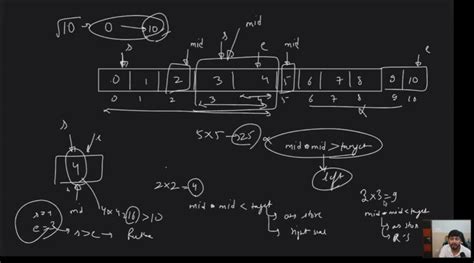 √10 → 0 10
s
mid
s mid
e
mid
e
0 1 2 3 4 5 6 7 8 9 10
0 1 2 3 4 5 6 7 8 9 10
5x5 → 25
mid * mid > target
left
s e
4
mid
4x4 = 16 > 10
s = 4
e = 3
s > e →
2x2 = 4
mid * mid < target
ans store
right
2x3 = 9
mid * mid < target
ans store
R.S